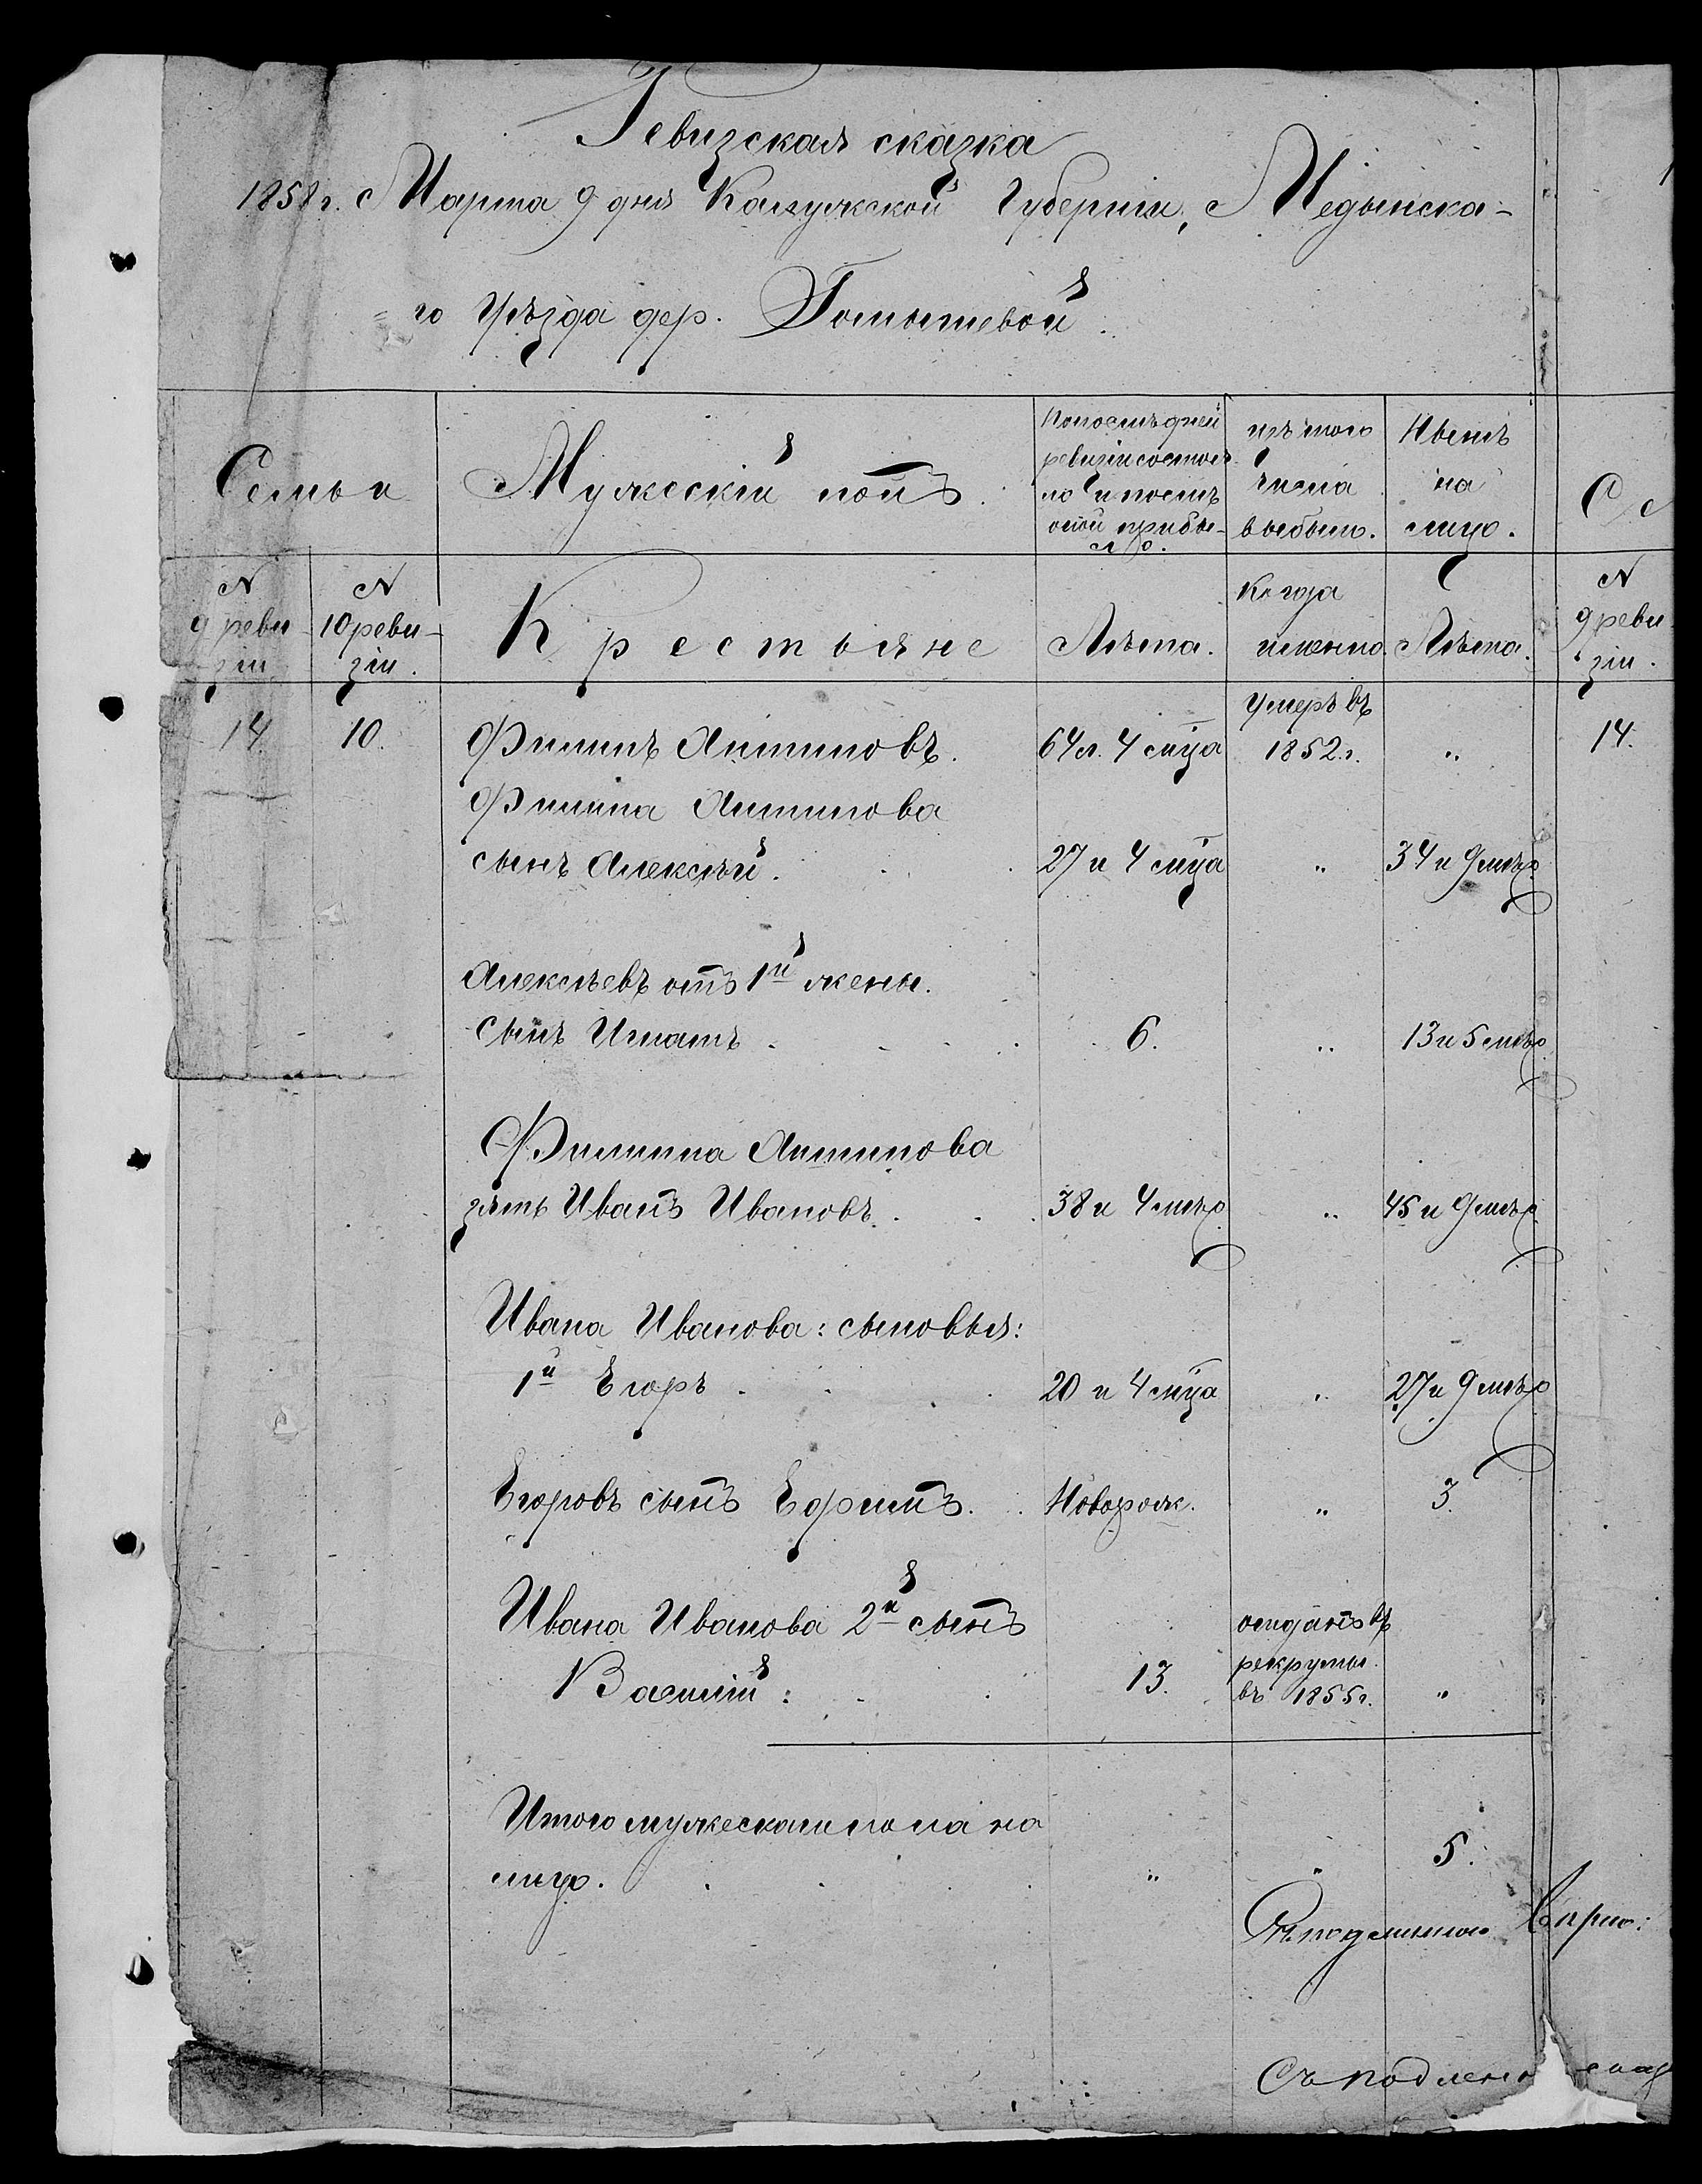 Ревизская сказка
1858 г. Марта 9 дня Калужской Губернiи, Медынска-
= го Уѣзда дер. Гомышевой.
Семьи
Мужескiй полъ.
По последней
ревизiи состоя-
ло и послѣ
оной прибы-
ло.
изъ того
числа
выбыло.
Нынѣ
на
лицо.
Се
N
9 реви-
зiи
N
10 реви-
зiи.
Крестьяне
Лѣта.
Когда
именно.
Лѣта.
N
9 реви
зiи.
14.
10.
Филипъ Антиповъ.
64 л. 4 мца
Умеръ въ
1852. г.
"
14.
Филипа Антипова
сынъ Алексѣй.
27 и 4 мца
"
34 и 9 мѣс.
Алексѣевъ отъ 1й жены.
Сынъ Игнатъ.
6.
"
13 и 5 мѣс.
Филипа Антипова
зять Иванъ Ивановъ.
38 и 4 мѣс.
"
45 и 9 мѣс.
Ивана Иванова: сыновья:
1й Егоръ.
20 и 4 мца
"
27 и 9 мѣс.
Егоровъ сынъ Ефимъ.
Новорож.
"
3.
Ивана Иванова 2й сынъ
Василiй:
13.
отданъ въ
рекруты
въ 1855 г.
"
Итого мужескаго пола на
лицо.
"
"
5.
Съ подлиннымъ вѣрно:
Съ подлено